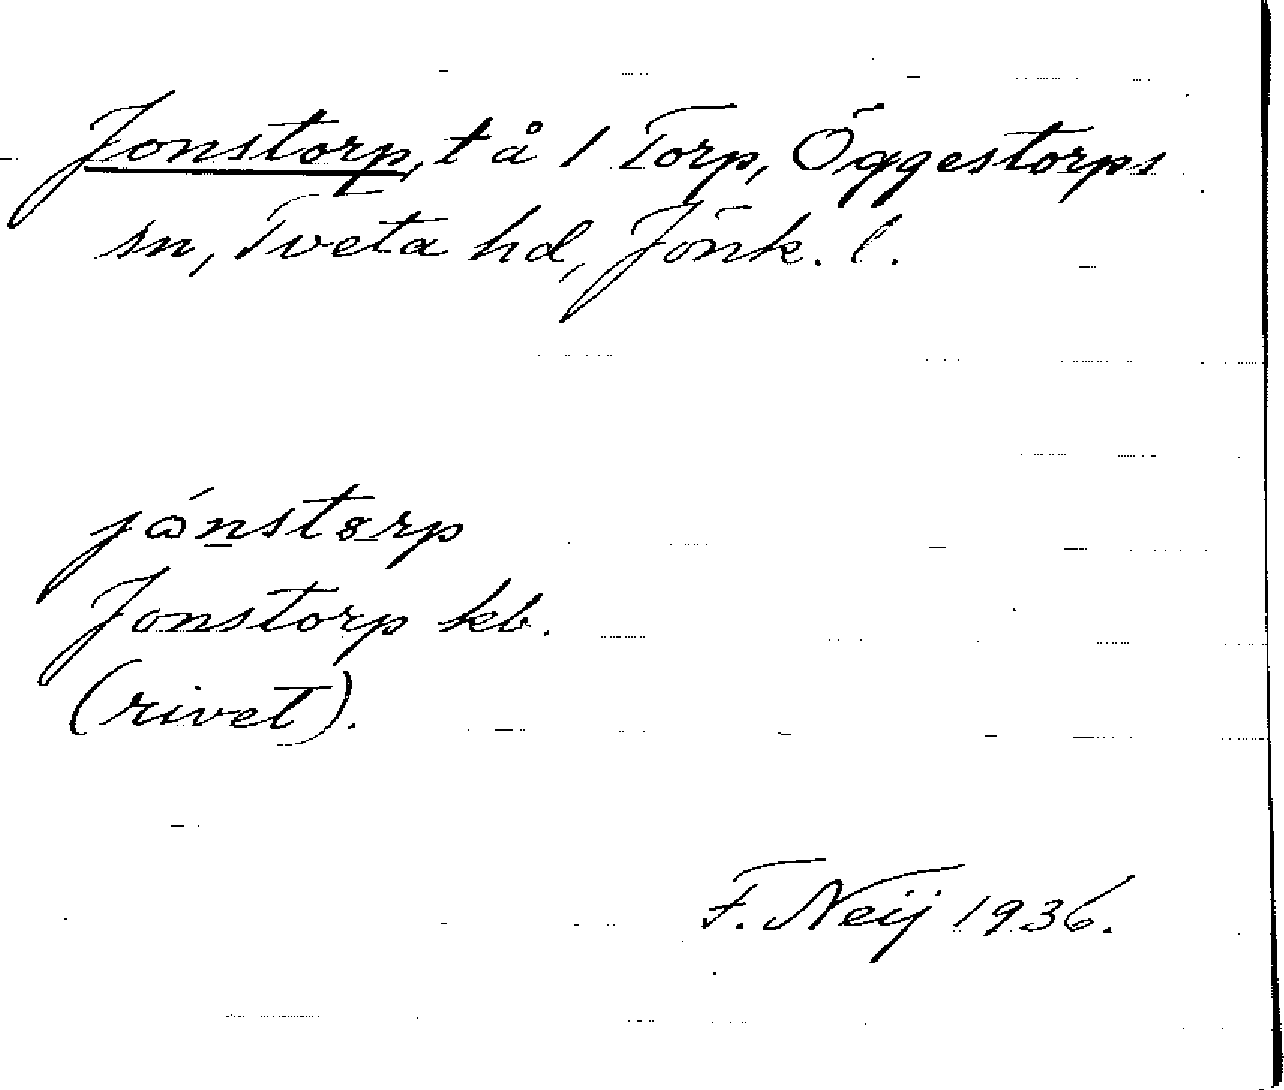 Jonstorp, t å 1 Torp, Öggestorps
sn, Tveta hd, Jönk. l.
jónstorp
Jonstorp kb.
(rivet).
F. Neij 1936.